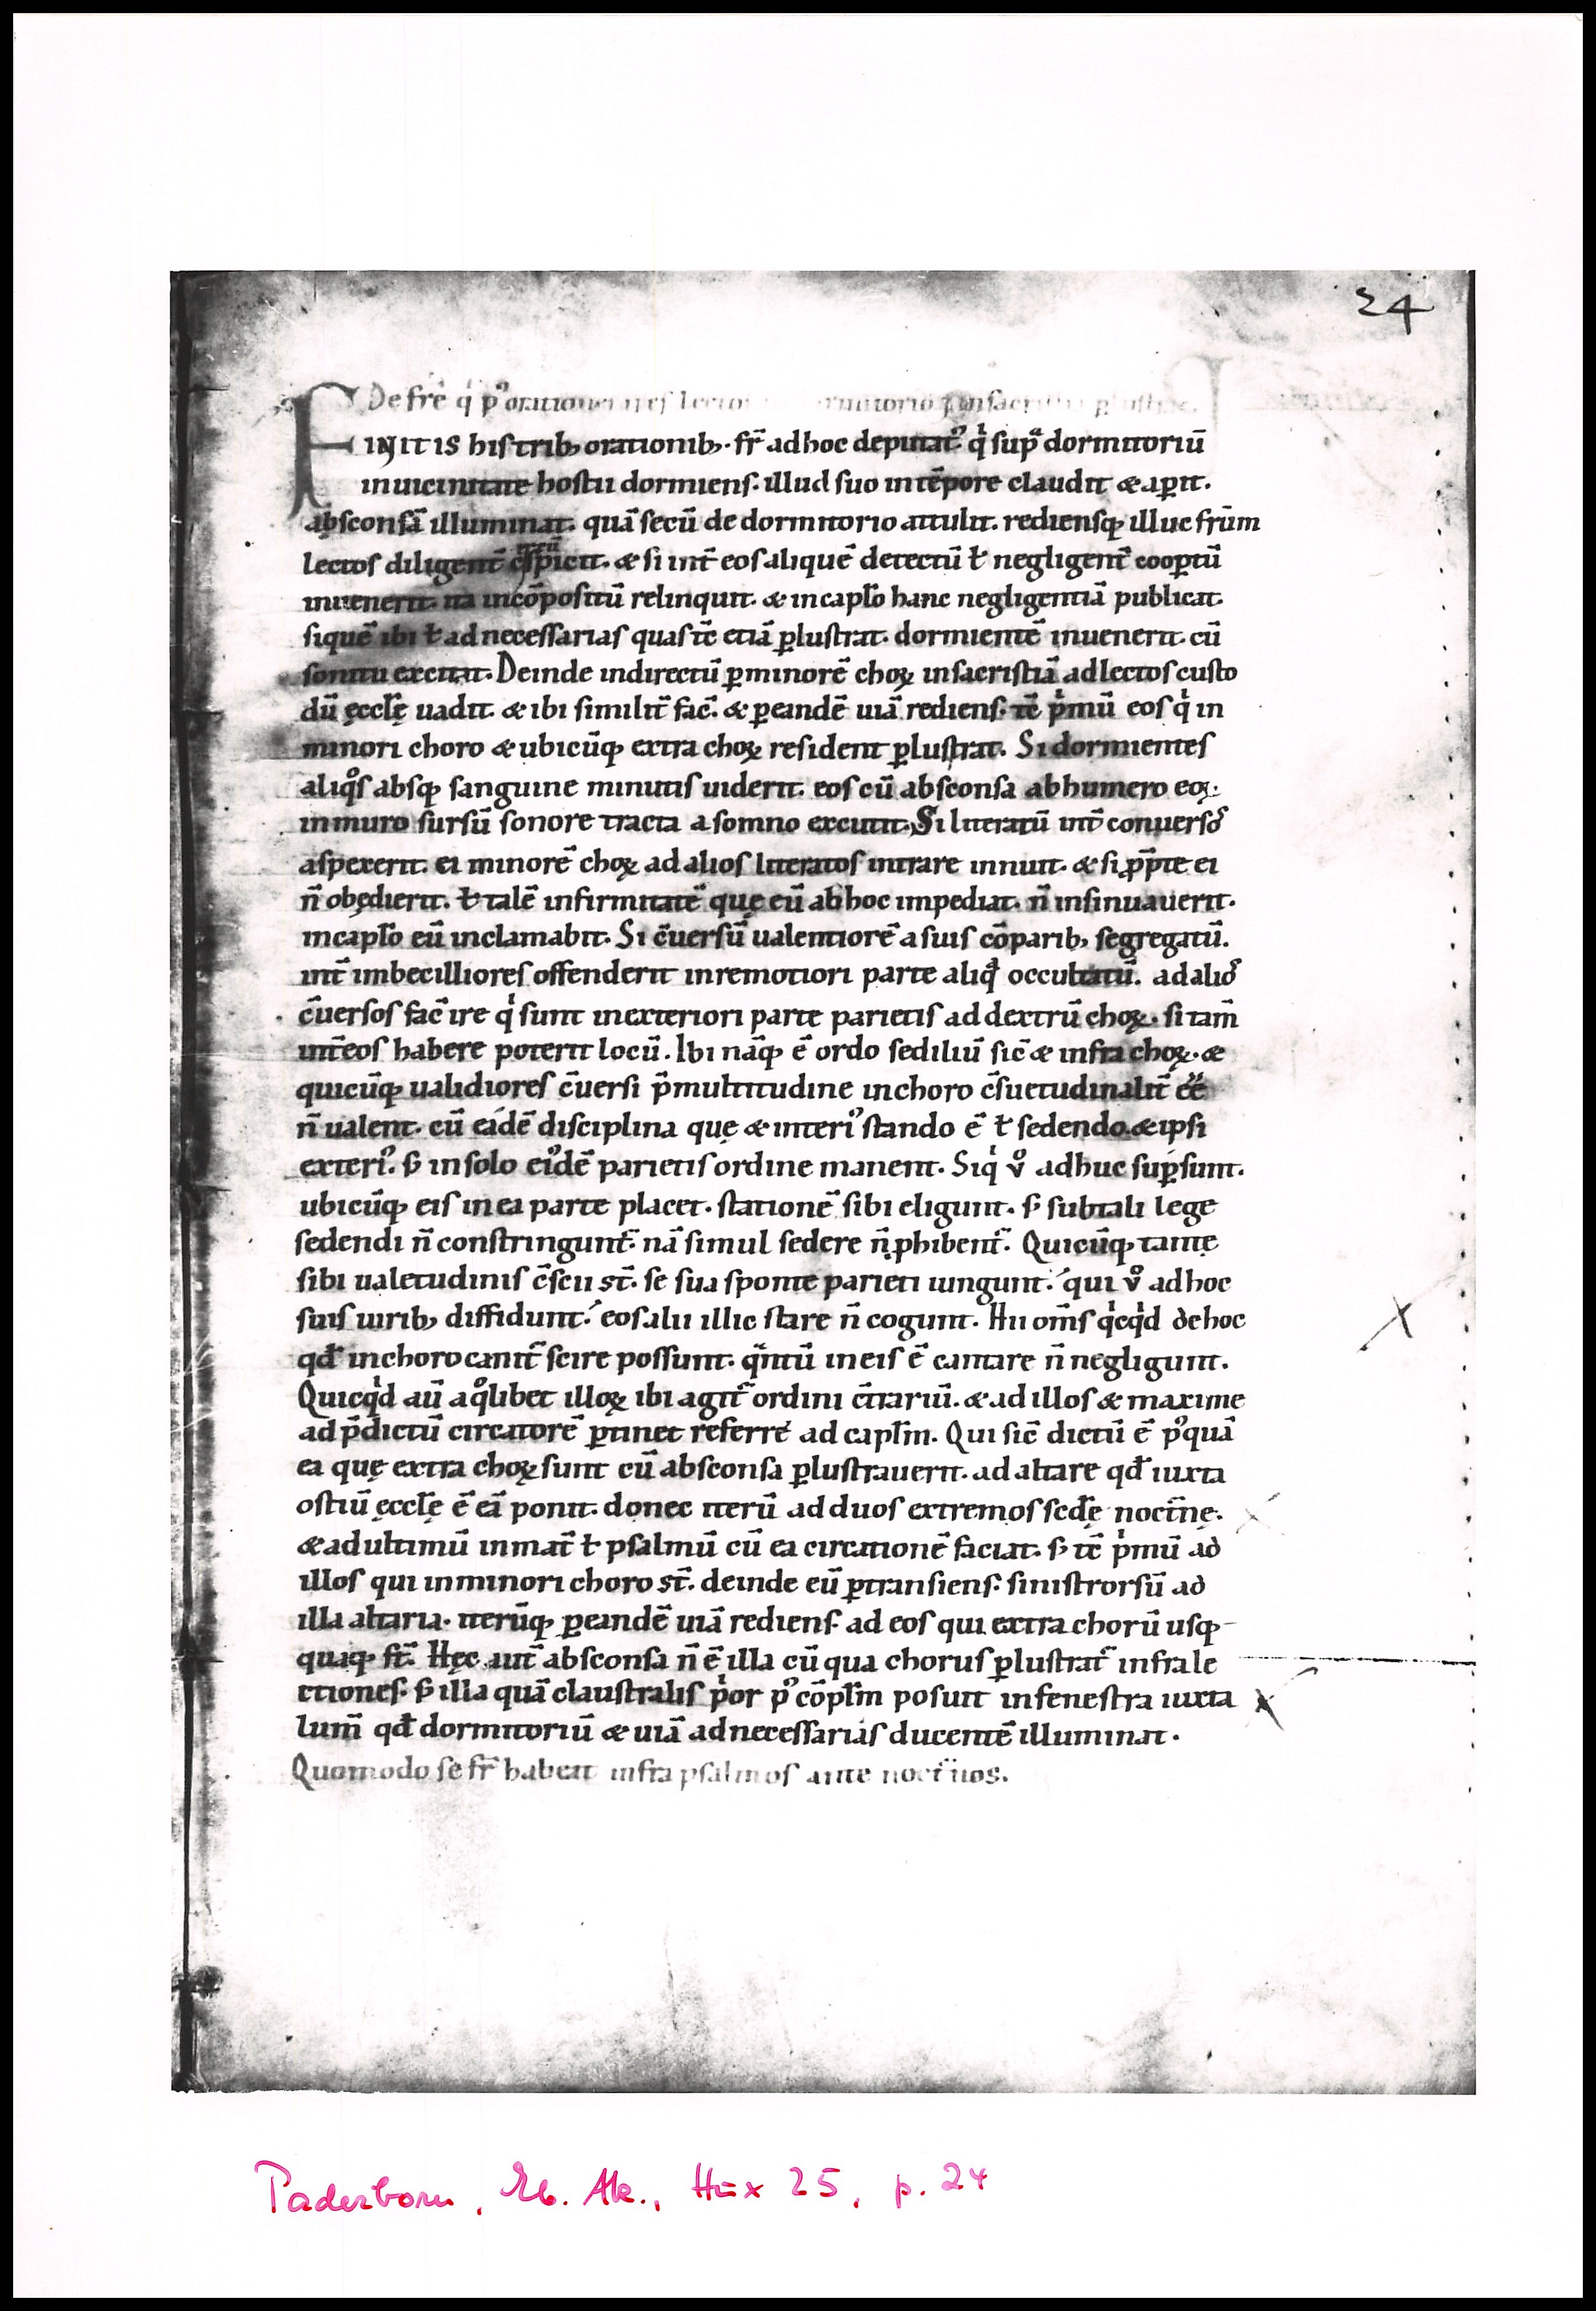 24
De fr̄e q' p' orationes
FINITIS his trib; orationib;. fr̄ ad hoc deputat' q' sup dormitoriū
in uicinitate hostii dormiens. illud suo in tēpore claudit & ap̲it.
absconsā illuminat. quā secū de dormitorio attulit. rediensq; illuc frūm
lectos diligent̄ cspicit. & si int̄ eos aliquē detectū ł negligent̄ coop̲tū
inuenerit. ita incōpositū relinquit. & in capl̄o hanc negligentiā publicat.
siquē ibi ł ad necessarias quas tc̄ etiā p̲lustrat. dormientē inuenerit. cū
sonitu excitat. Deinde indirectū p̲ minorē choꝝ in sacristiā ad lectos custo
dū ęccl̄ę uadit. & ibi similit̄ fac̄. & p̲ eandē uiā rediens. tc̄ p'mū eos q' in
minori choro & ubicūq; extra choꝝ resident p̲lustrat. Si dormientes
aliq°s absq; sanguine minutis uiderit. eos cū absconsa ab humero eoꝝ.
in muro sursū sonore tracta a somno excutit. Si litteratū int̄ conuersos
aspexerit. ei minorē choꝝ ad alios litteratos intrare innuit. & si p̲pte ei
n̄ obędierit. ł talē infirmitatē quę eū ab hoc impediat. n̄ insinuauerit.
in capl̄o eū inclamabit. Si c̄uersū ualentiorē a suis cōparib; segregatū.
int̄ imbecilliores offenderit in remotiori parte aliq̄ occultatū. ad alios
c̄uersos fac̄ ire q' sunt in exteriori parte parietis ad dextrū choꝝ. si tam̄
int̄ eos habere poterit locū. Ibi nāq; ē ordo sediliū sic̄ & infra choꝝ. &
quicūq; ualidiores c̄uersi p̄ multitudine in choro c̄suetudinalit̄ ēē
n̄ ualent. cū eadē disciplina quę & interi' stando ē ł sedendo. & ipsi
exteri'. s; in solo ei'dē parietis ordine manent. Siq' v° adhuc sup̲sunt.
ubicūq; eis in ea parte placet. stationē sibi eligunt. s; sub tali lege
sedendi n̄ constringunt̄. nā simul sedere n̄ phibent̄. Quicūq; tantę
sibi ualetudinis c̄scii st̄. se sua sponte parieti iungunt. qui v° ad hoc
suis uirib; diffidunt. eos alii illic stare n̄ cogunt. Hii om̄s q'cq'd de hoc
qđ in choro canit̄ scire possunt. q̄ntū in eis ē cantare n̄ negligunt.
Quicq'd aū a q°libet illoꝝ ibi agit̄ ordini c̄trariū. & ad illos & maxime
ad p̄dictū circatorē p̲tinet referre ad capl̄m. Qui sic̄ dictū ē p' quā
ea quę extra choꝝ sunt cū absconsa p̲lustrauerit. ad altare qđ iuxta
ostiū ęccl̄ę ē eā ponit. donec iterū ad duos extremos scđę noct̄nę.
& ad ultimū in mat̄ ł psalmū cū ea circationē faciat. s; tc̄ p'mū ad
illos qui in minori choro st̄. deinde eū p̲transiens. sinistrorsū ad
illa altaria. iterūq; p̲ eandē uiā rediens. ad eos qui extra chorū usq;
quaq; st̄. Hęc aut̄ absconsa n̄ ē illa cū qua chorus p̲lustrat̄ infra le
ctiones. s; illa quā claustralis p'or p' cōpl̄m posuit in fenestra iuxta
lum̄ qđ dormitoriū & uiā ad necessarias ducentē illuminat.
Quomodo se fr̄ habeāt infra psalmos ante noct̄nos.
Paderborn, Eb. Ak., Hux 25, p. 24